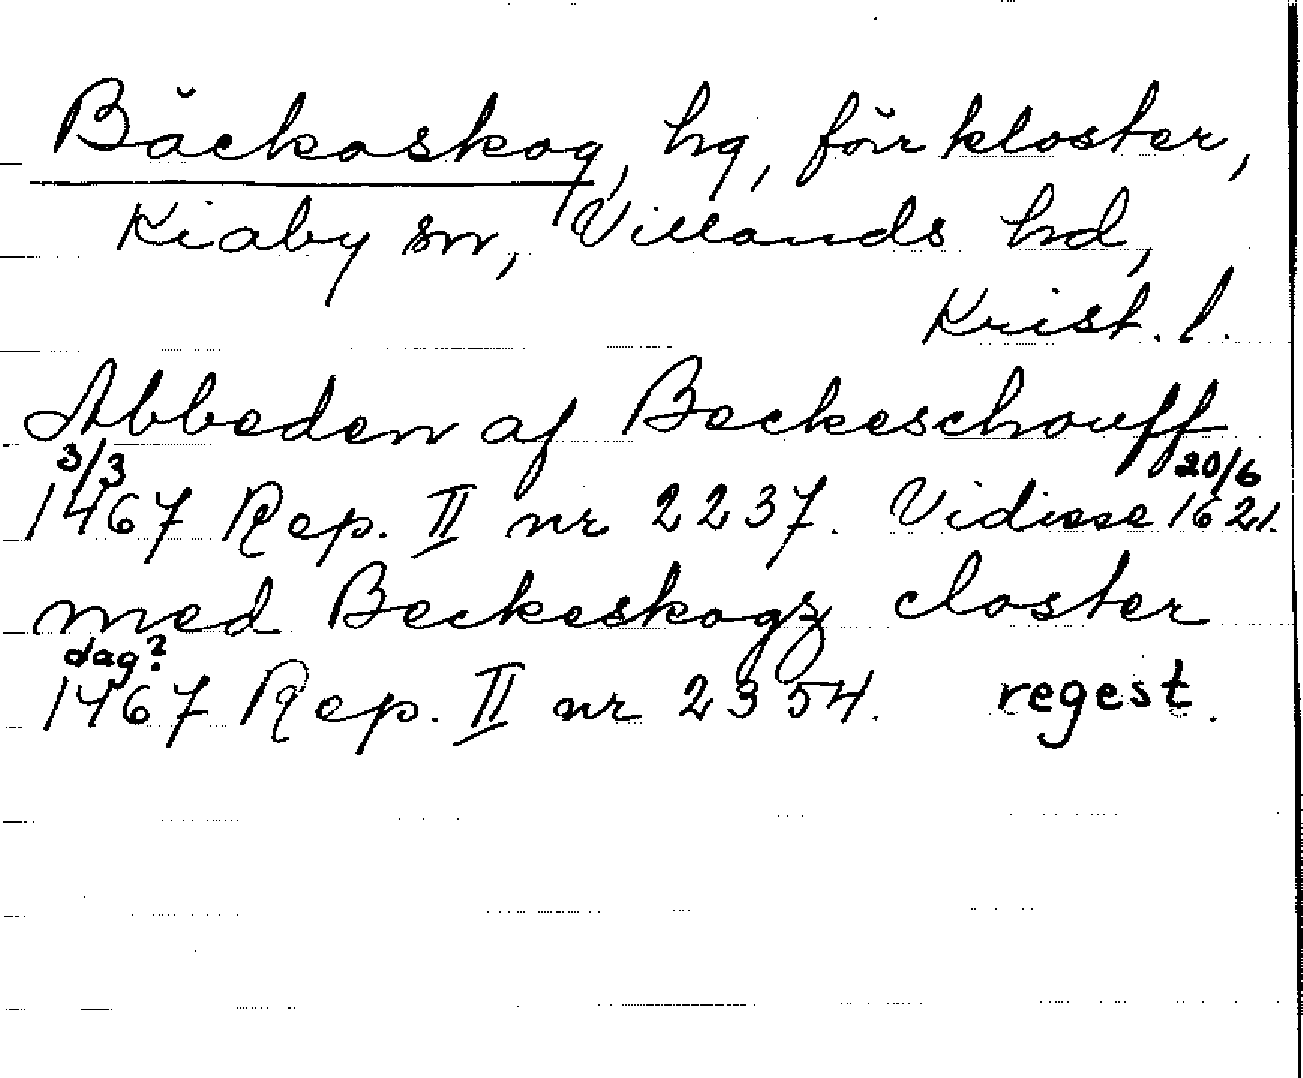 Bäckaskog, hg, förr kloster,
Kiaby sn, Villands hd,
Krist. l.
Abbeden af Beckeschouff
3/3 20/6
1467 Rep. II nr 2237. Vidisse 1621.
med Beckeskogz closter
dag?
1467 Rep. II nr 2354. regest.